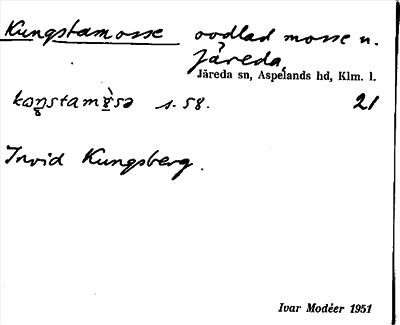 Kungstamosse oodlad mosse n.
Järeda.
Järeda sn, Aspelands hd, Klm. l.
s. 58. 21
Invid Kungsberg.
Ivar Modéer 1951